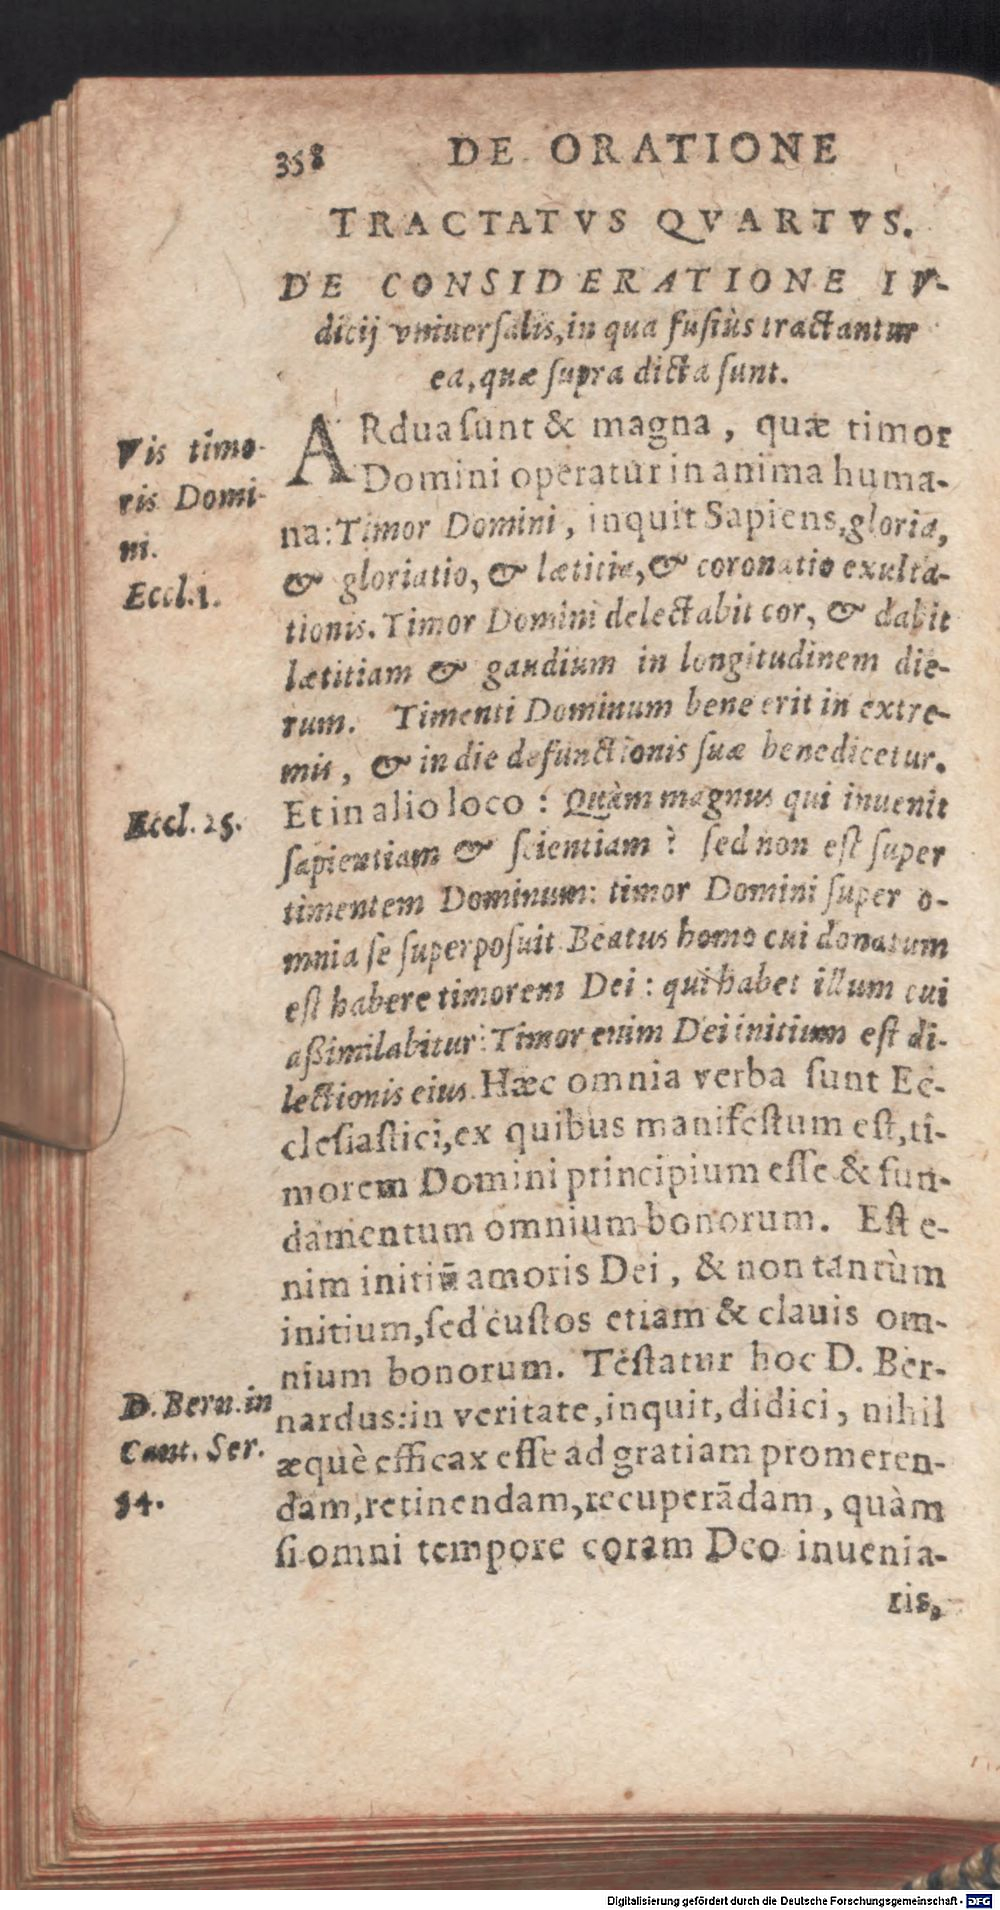 358 DE ORATIONE
TRACTATVS QVARTVS.
DE CONSIDERATIONE IV-
dicij vniuersalis, in qua fusiùs tractantur
ea, quæ supra dicta sunt.
ARdua sunt & magna, quæ timor
Domini operatur in anima huma-
na: Timor Domini, inquit Sapiens, gloria,
& gloriatio, & lætitia, & coronatio exulta-
tionis. Timor Domini delectabit cor, & dabit
lætitiam & gaudium in longitudinem die-
rum. Timenti Dominum bene erit in extre-
mis, & in die defunctionis suæ benedicetur.
Et in alio loco: Quàm magnus qui inuenit
sapientiam & scientiam? sed non est super
timentem Dominum: timor Domini super o-
mnia se superposuit. Beatus homo cui donatum
est habere timorem Dei: qui habet illum cui
aßimilabitur: Timor enim Dei initium est di-
lectionis eius. Hæc omnia verba sunt Ec-
clesiastici, ex quibus manifestum est, ti-
morem Domini principium esse & fun-
damentum omnium bonorum. Est e-
nim initiū amoris Dei, & non tantùm
initium, sed custos etiam & clauis om-
nium bonorum. Testatur hoc D. Ber-
nardus: in veritate, inquit, didici, nihil
æquè efficax esse ad gratiam promeren-
dam, retinendam, recuperādam, quàm
si omni tempore coram Deo inuenia-
ris,
Vis timo-
ris Domi-
ni.
Eccl.1.
Eccl. 25.
D. Bern. in
Cant. Ser.
54.
Digitalisierung gefördert durch die Deutsche Forschungsgemeinschaft - DFG